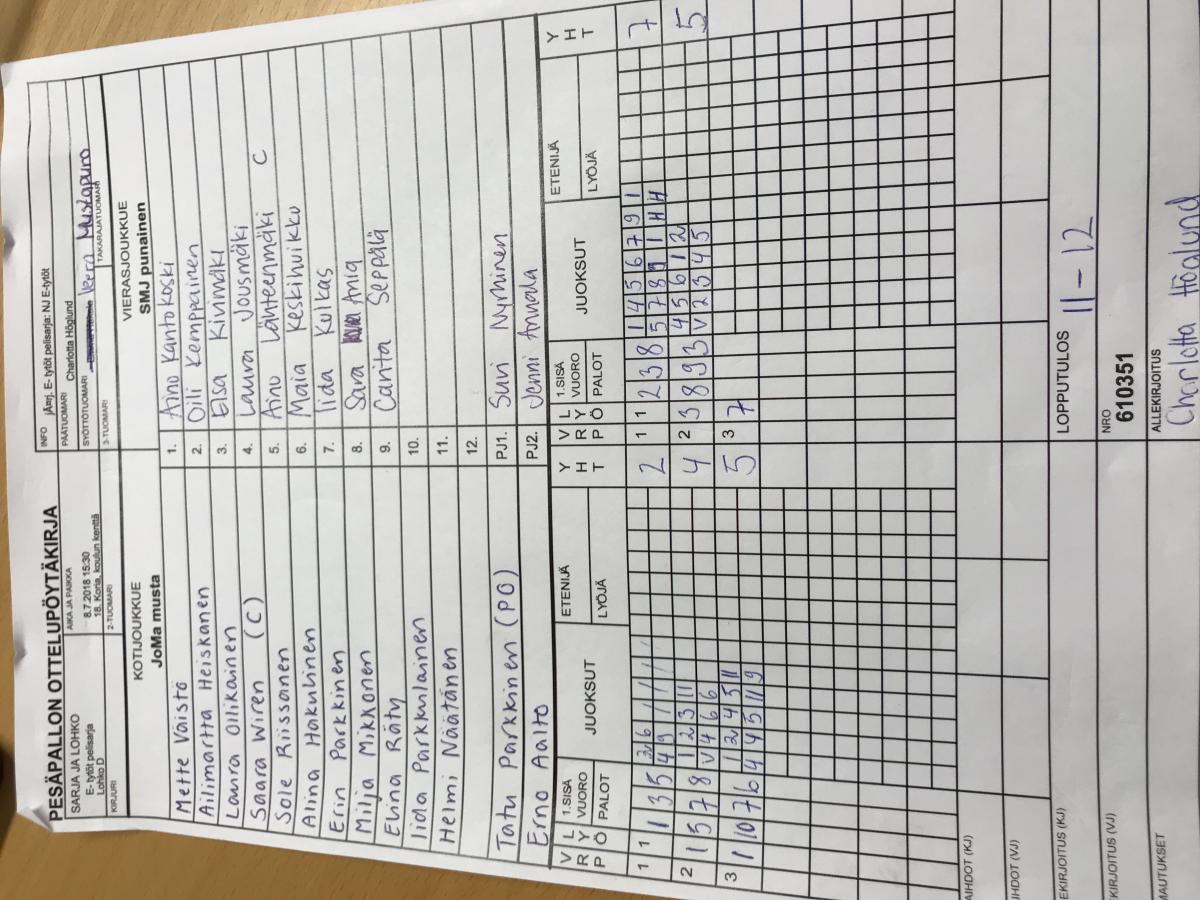 PESÄPALLON OTTELUPÖYTÄKIRJA
INFO E- tytöt pelisarja: NJ E-tytöt
SARJA JA LOHKO
E- tytöt pelisarja
Lohko D
AIKA JA PAIKKA
8.7.2018 15:30
18. Koria, koulun kenttä
PÄÄTUOMARI Charlotta Höglund
SYÖTTÖTUOMARI Veera Mustapuro
KIRJURI
2-TUOMARI
3-TUOMARI
TAKARAJATUOMARI
KOTIJOUKKUE
JoMa musta
VIERASJOUKKUE
SMJ punainen
Mette Väistö 1. Aino Kantokoski
Ailimartta Heiskanen 2. Oili Kemppainen
Laura Ollikainen 3. Elsa Kivimäki
Saara Wiren (C) 4. Laura Jousmäki
Sole Riissanen 5. Aino Lähteenmäki C
Alina Hakulinen 6. Maia Keskihuikku
Erin Parkkinen 7. Iida Kulkas
Milja Mikkonen 8. Sara Ania
Elina Räty 9. Carita Seppälä
Iida Parkkulainen 10.
Helmi Näätänen 11.
12.
Tatu Parkkinen (PO) PJ1. Suvi Nyrhinen
Erno Aalto PJ2. Jenni Annala
V R P
L Y Ö
1.SISÄ VUORO
PALOT
JUOKSUT
ETENIJÄ
LYÖJÄ
Y H T
V R P
L Y Ö
1.SISÄ VUORO
PALOT
JUOKSUT
ETENIJÄ
LYÖJÄ
Y H T
1 1 1 3 5 2 6
4 9
2
1 1 2 3 8 1 4 5 6 7 9 1
5 7 8 9 1 H H
7
2 1 5 7 8 1 2 3 11
V 4 6 6
4
2 3 8 9 3 4 5 6 1 2
V 2 3 4 5
5
3 1 10 7 6 1 2 4 5 11
4 4 5 11 9
5
3 7
AIHDOT (KJ)
IHDOT (VJ)
EKIRJOITUS (KJ)
LOPPUTULOS
11 - 12
EKIRJOITUS (VJ)
NRO
610351
MAUTUKSET
ALLEKIRJOITUS
Charlotta Höglund